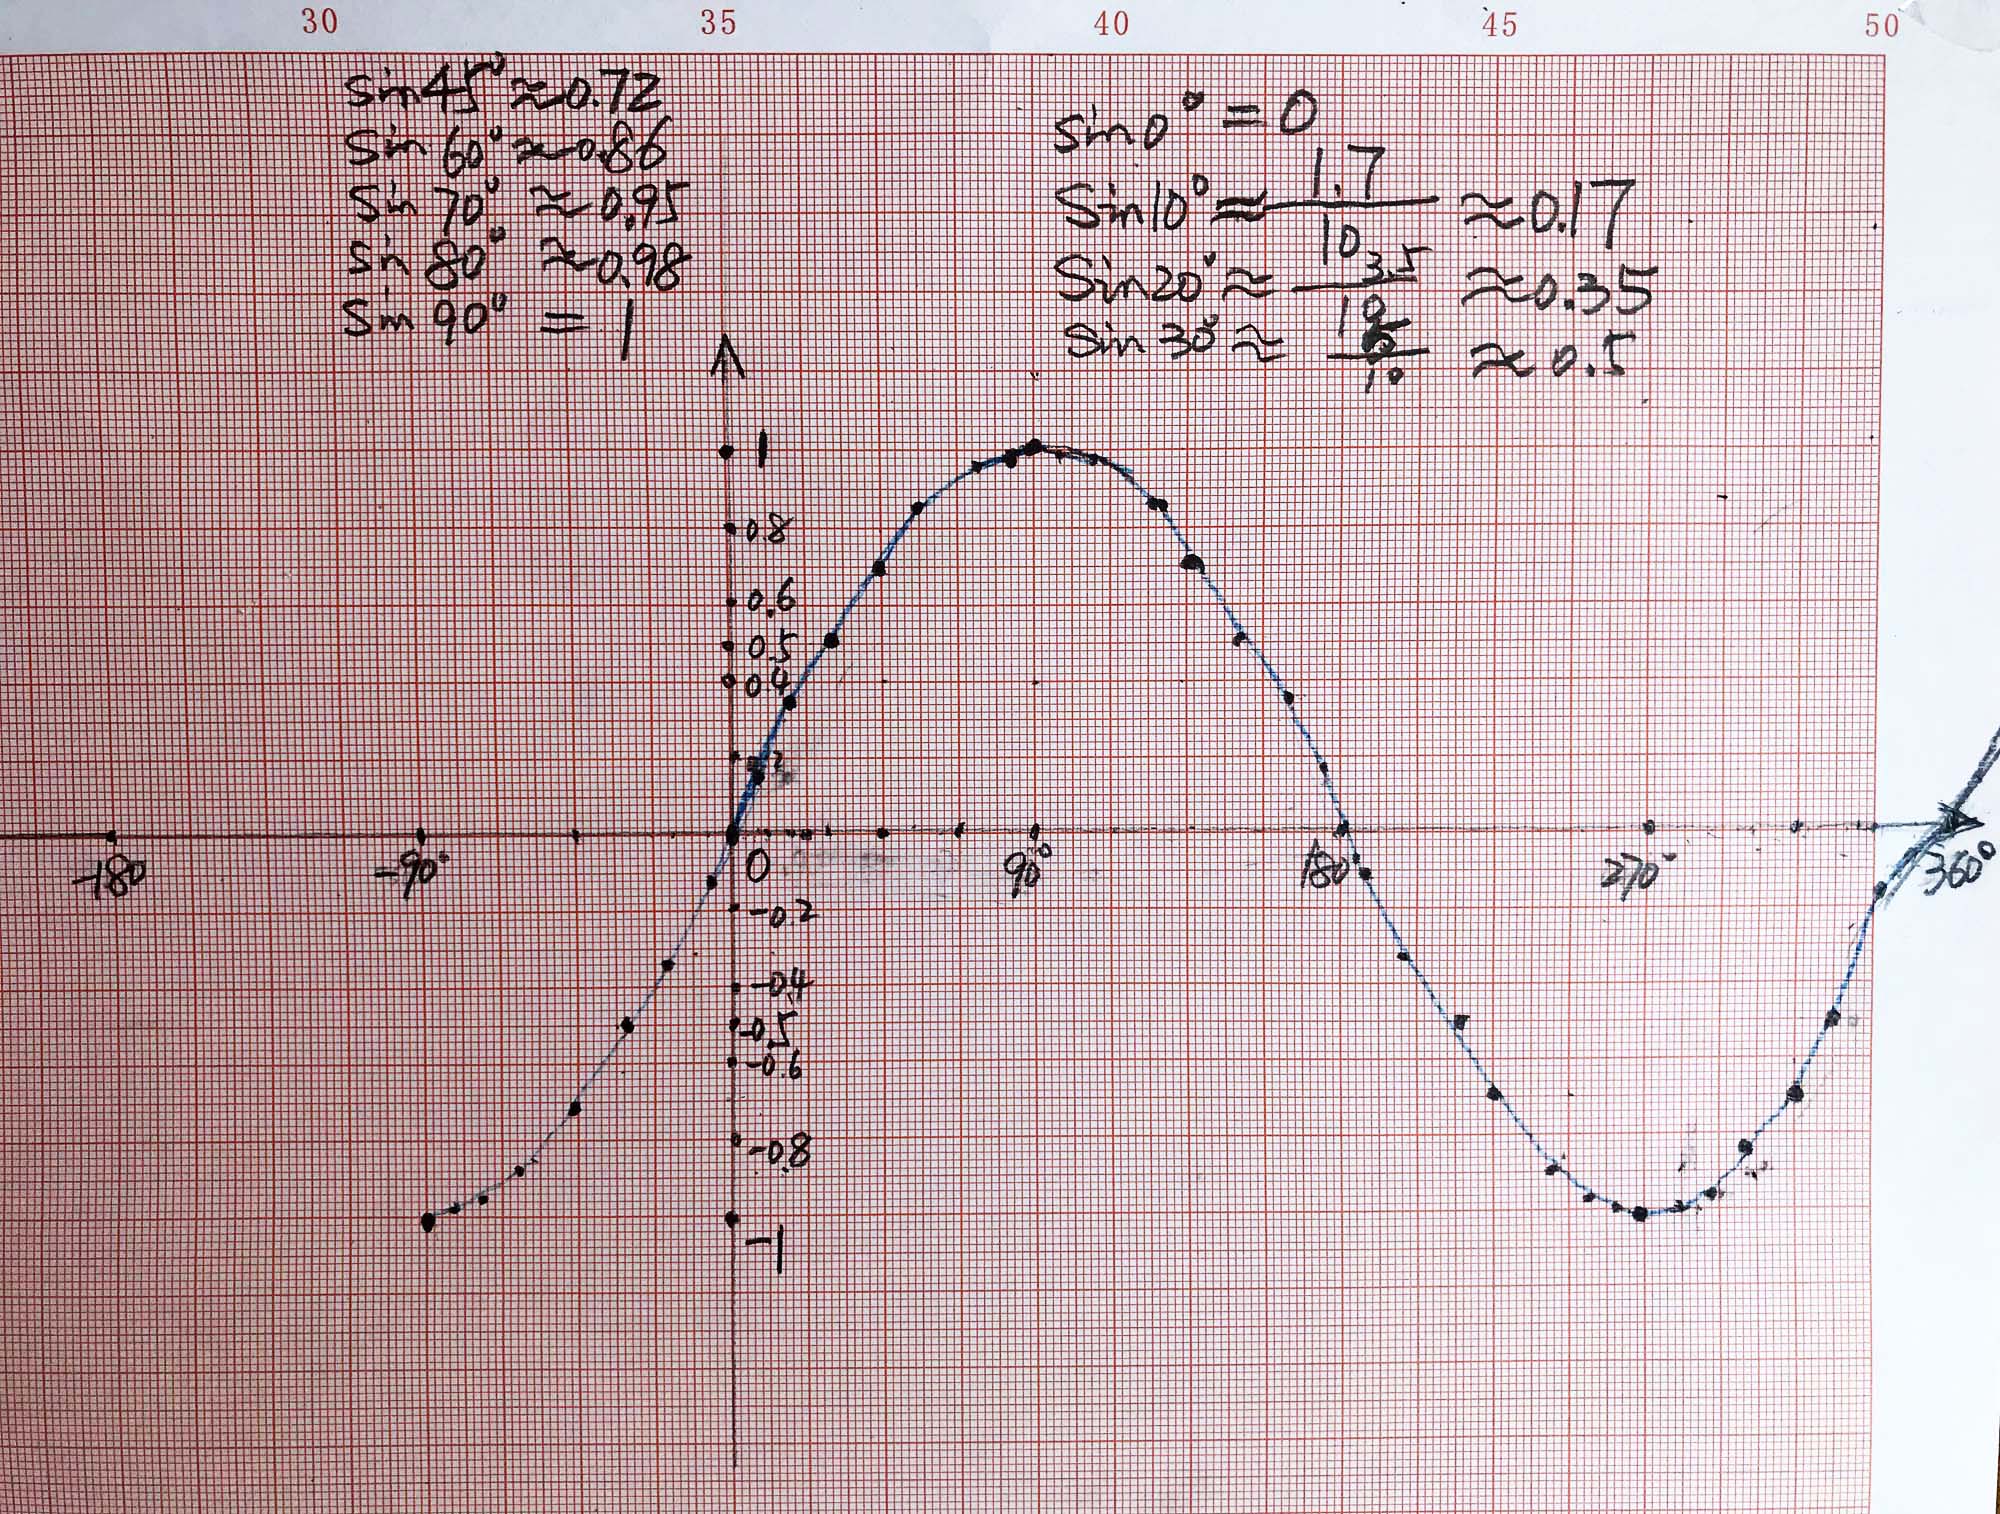 30 35 40 45 50
sin45° ≈0.72
Sin 60° ≈0.86
Sin 70° ≈0.95
Sin 80° ≈0.98
Sin 90° = 1
sin0° = 0
Sin10° ≈ 1.7/10 ≈0.17
Sin20° ≈ 3.5/10 ≈0.35
Sin 30° ≈ 5/10 ≈ 0.5
1
0.8
0.6
0.5
0.4
-180 -90° 0 90° 180° 270° 360°
-0.2
-0.4
-0.5
-0.6
-0.8
-1